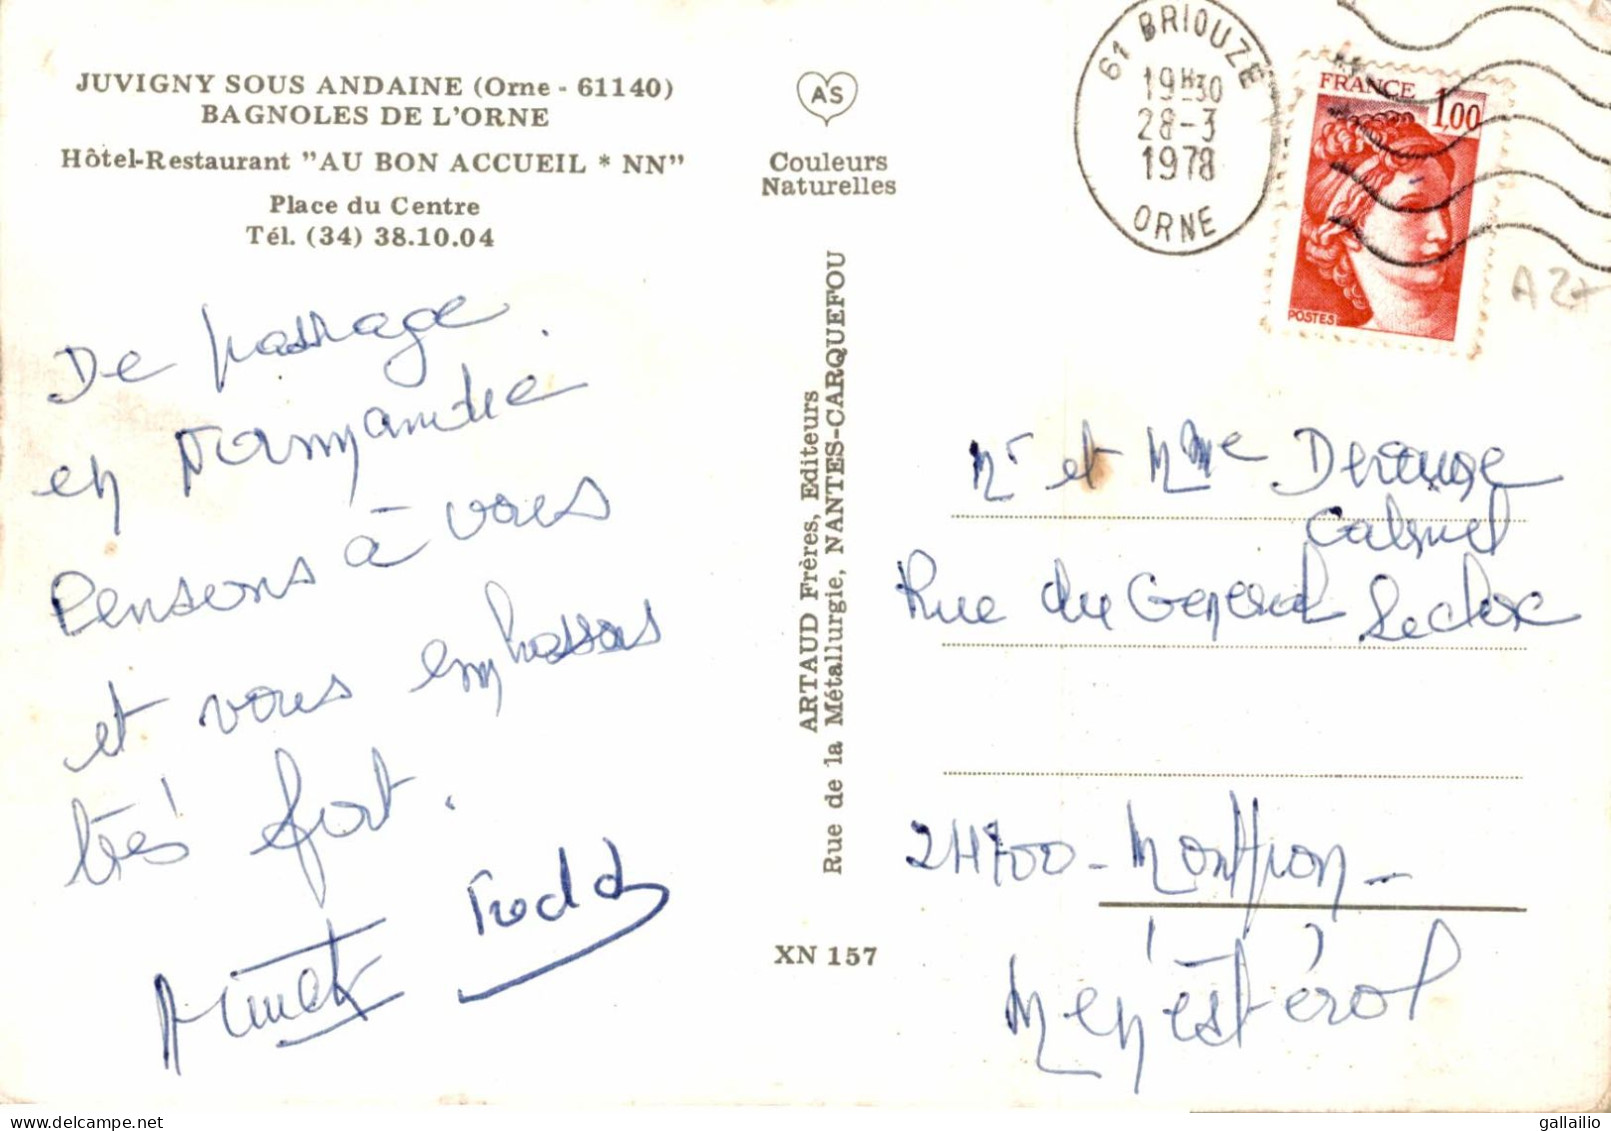 JUVIGNY SOUS ANDAINE (Orne - 61140)
BAGNOLES DE L'ORNE
Hôtel-Restaurant "AU BON ACCUEIL * NN"
Place du Centre
Tél. (34) 38.10.04
De passage
en Normandie.
Pensons à vous
et vous embrassons
très fort.
Fredd
AS
Couleurs
Naturelles
ARTAUD Frères, Editeurs
Rue de la Métallurgie, NANTES-CARQUEFOU
XN 157
61 BRIOUZE
19H30
28-3
1978
ORNE
FRANCE 1,00
POSTES
A27
Mr et Mme
Gabriel
Rue du General Leclerc
24700 - Montpon -
Ménéstérol
gallailio